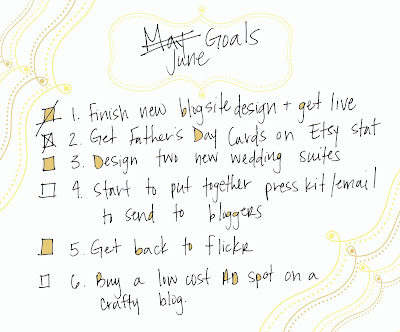 May Goals
June
1. Finish new blogsite design + get live
2. Get Father's Day Cards on Etsy stat
3. Design two new wedding suites
4. Start to put together press kit/email
to send to bloggers
5. Get back to flickr
6. Buy a low cost AD spot on a
crafty blog.